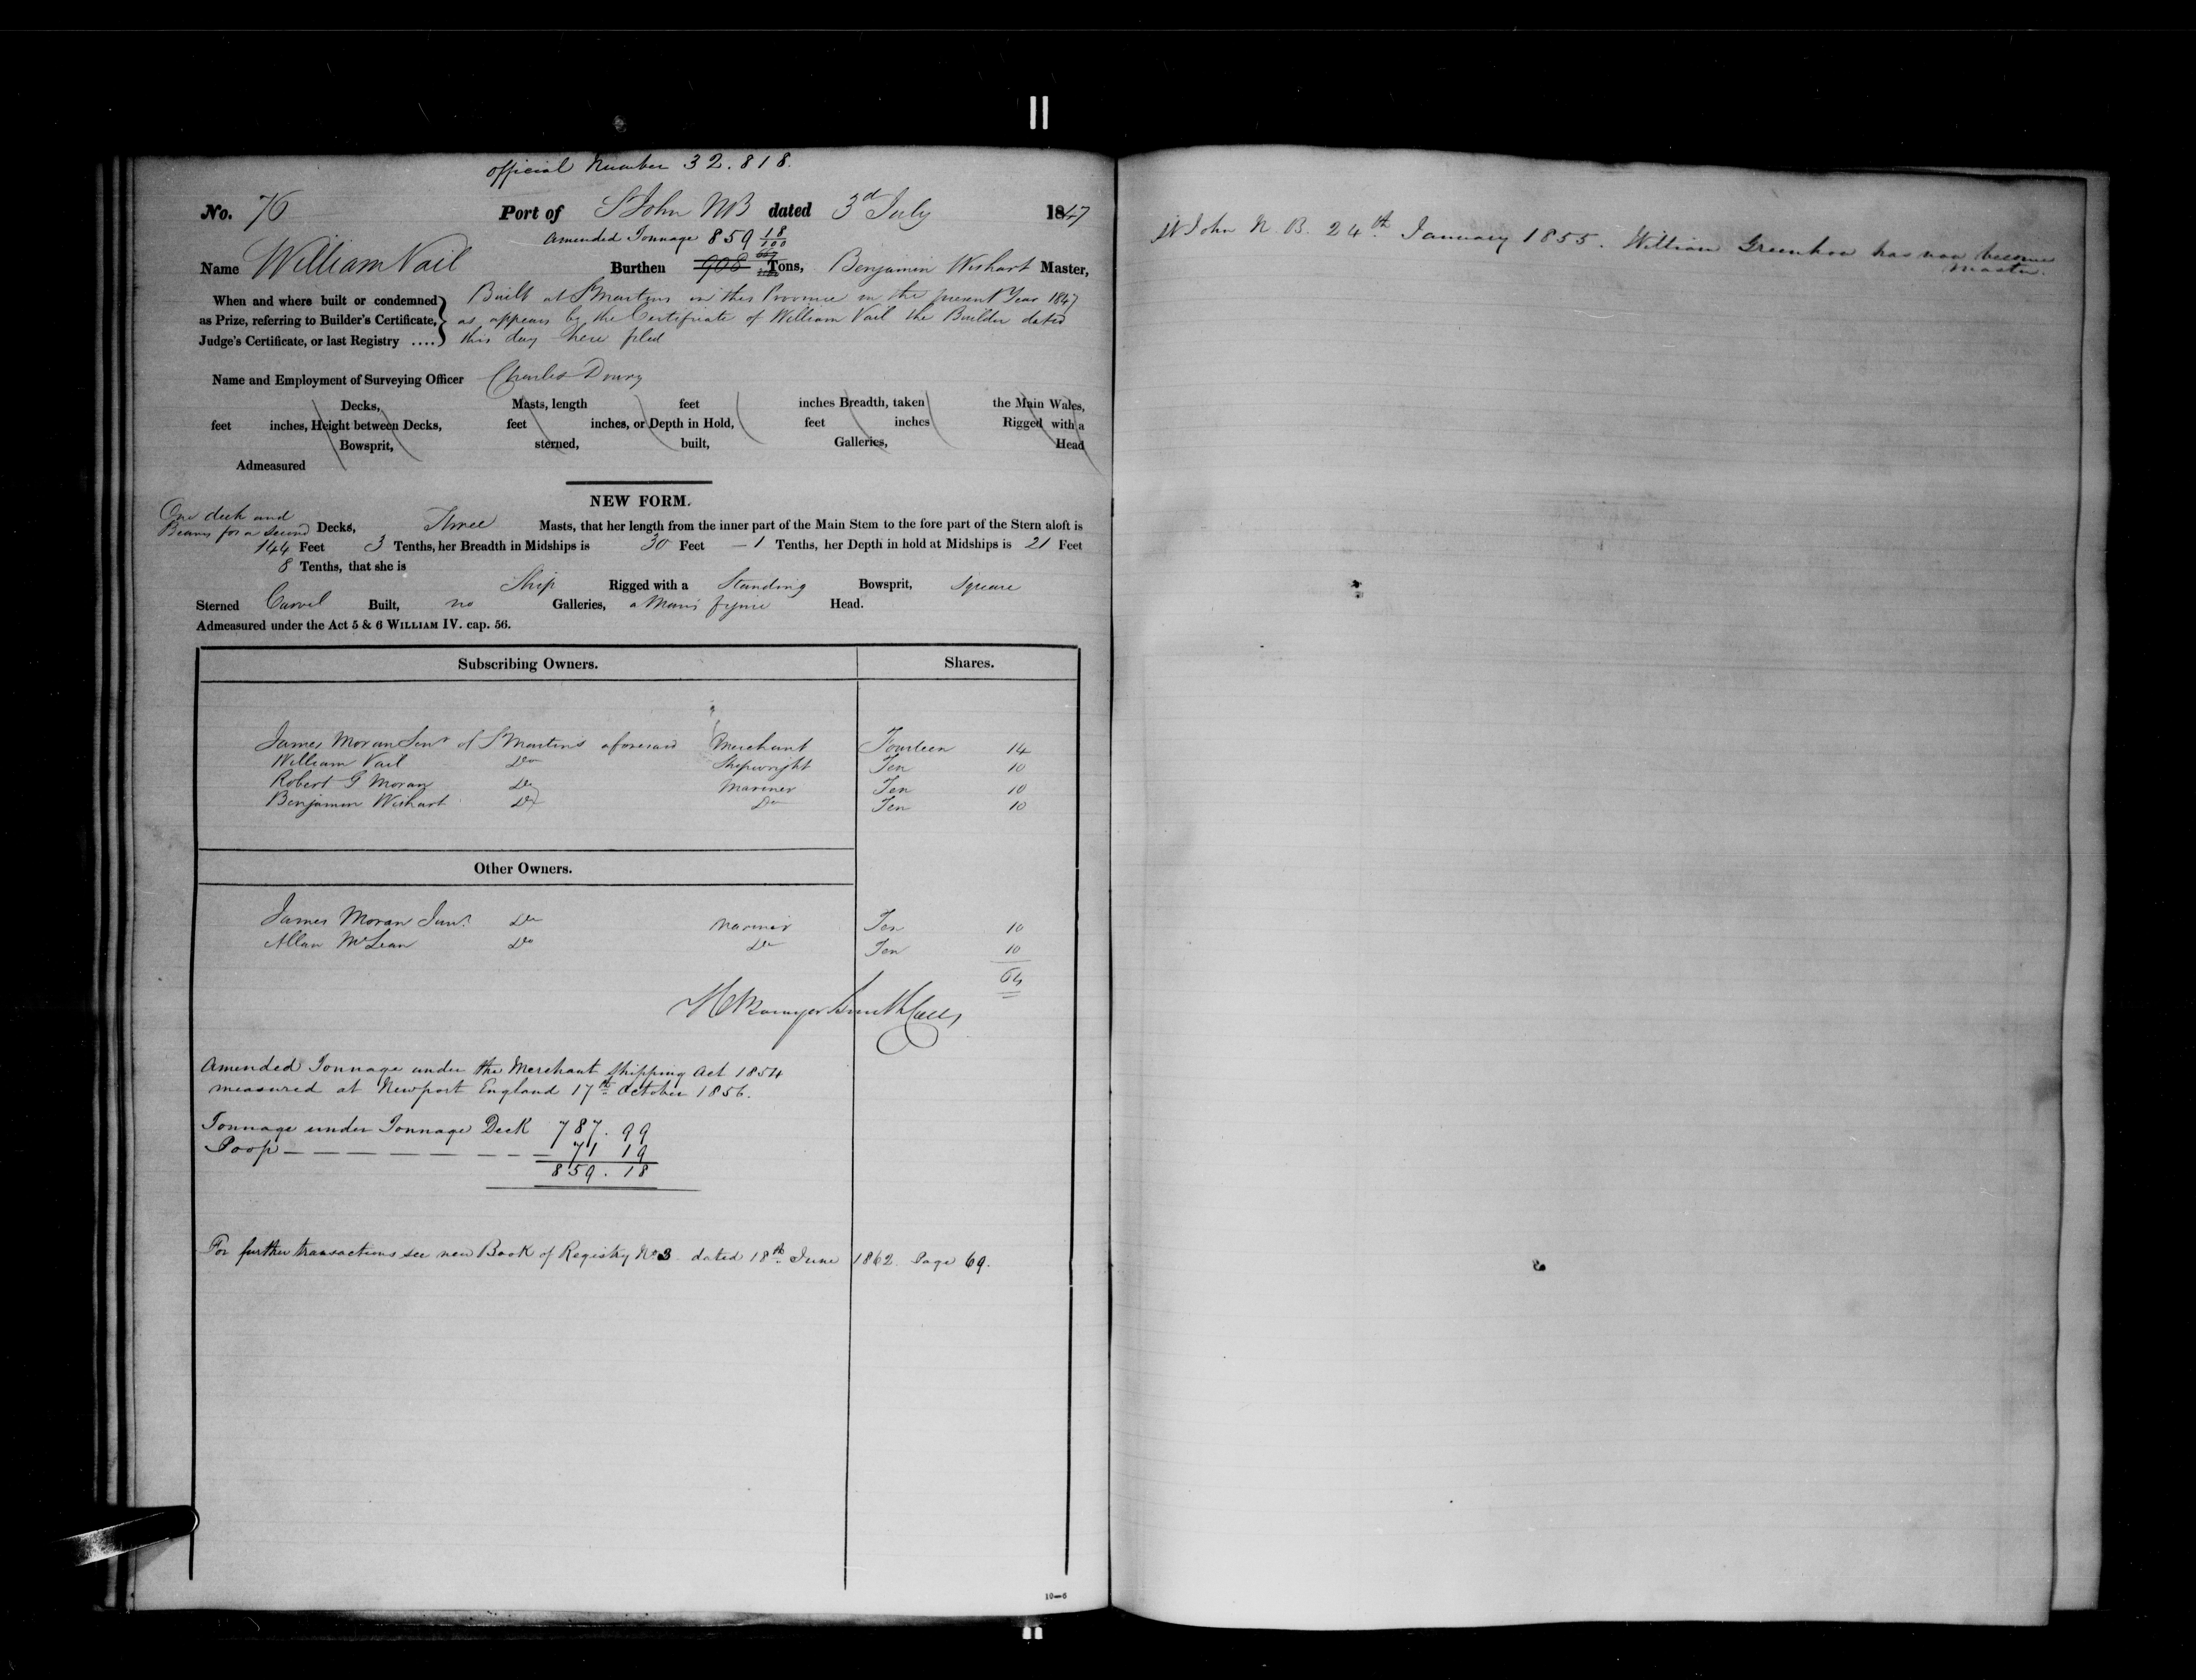 official Number 32.818.
No. 76 Port of St John NB dated 3d July 1847
Amended Tonnage 859 18/100
Name William Vail Burthen 908 Tons, Benjamin Wishart Master,
When and where built or condemned Built at St Martins in this Province in the present Year 1847
as Prize, referring to Builder's Certificate, as appears by the Certificate of William Vail the Builder dated
Judge's Certificate, or last Registry .... this day here filed
Name and Employment of Surveying Officer Charles Drury
Decks, Masts, length feet inches Breadth, taken the Main Wales,
feet inches, Height between Decks, feet inches, or Depth in Hold, feet inches Rigged with a
Bowsprit, sterned, built, Galleries, Head
Admeasured
NEW FORM.
One deck and
Beams for a second Decks, Three Masts, that her length from the inner part of the Main Stem to the fore part of the Stern aloft is
144 Feet 3 Tenths, her Breadth in Midships is 30 Feet - 1 Tenths, her Depth in hold at Midships is 21 Feet
8 Tenths, that she is
Ship Rigged with a Standing Bowsprit, Square
Sterned Carvel Built, no Galleries, a Mans figure Head.
Admeasured under the Act 5 & 6 WILLIAM IV. cap. 56.
Subscribing Owners. Shares.
James Moran Senr of St Martins aforesaid Merchant Fourteen 14
William Vail Do Shipwright Ten 10
Robert G Moran Do Mariner Ten 10
Benjamin Wishart Do Do Ten 10
Other Owners.
James Moran Junr. Do Mariner Ten 10
Allan McLean Do Do Ten 10
64
Amended Tonnage under the Merchant Shipping Act 1854
measured at Newport England 17th October 1856.
Tonnage under Tonnage Deck 787.99
Poop — — — — — — — — 71 19
859.18
For further transactions see new Book of Registry No 3 dated 18th June 1862. Page 69.
10—6
St John N. B. 24th January 1855. William Greenhow has now become
Master.